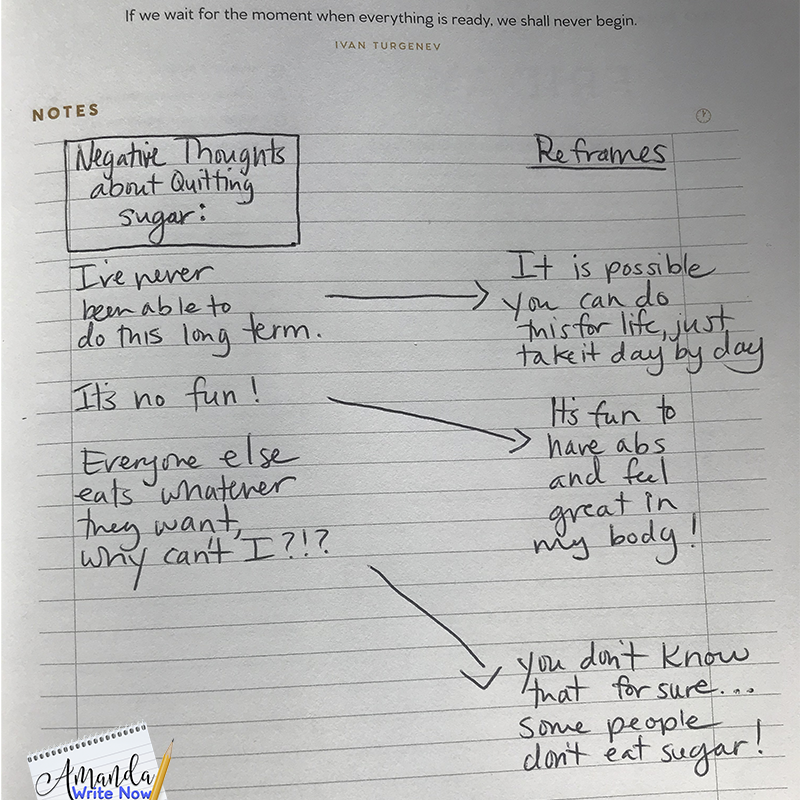 If we wait for the moment when everything is ready, we shall never begin.
IVAN TURGENEV
NOTES
Negative Thoughts
about Quitting
sugar:
Reframes
I've never
been able to
do this long term.
It is possible
you can do
this for life, just
take it day by day
It's no fun!
It's fun to
have abs
and feel
great in
my body!
Everyone else
eats whatever
they want,
why can't I?!?
you don't know
that for sure...
some people
don't eat sugar!
Amanda
Write Now